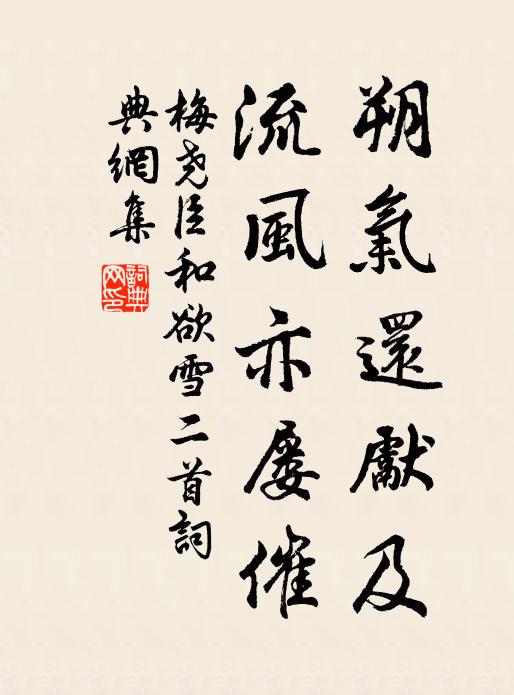 朔氣還獻及
流風亦屡催
梅尧臣和欲雪二首詞
典網集
詞典网印